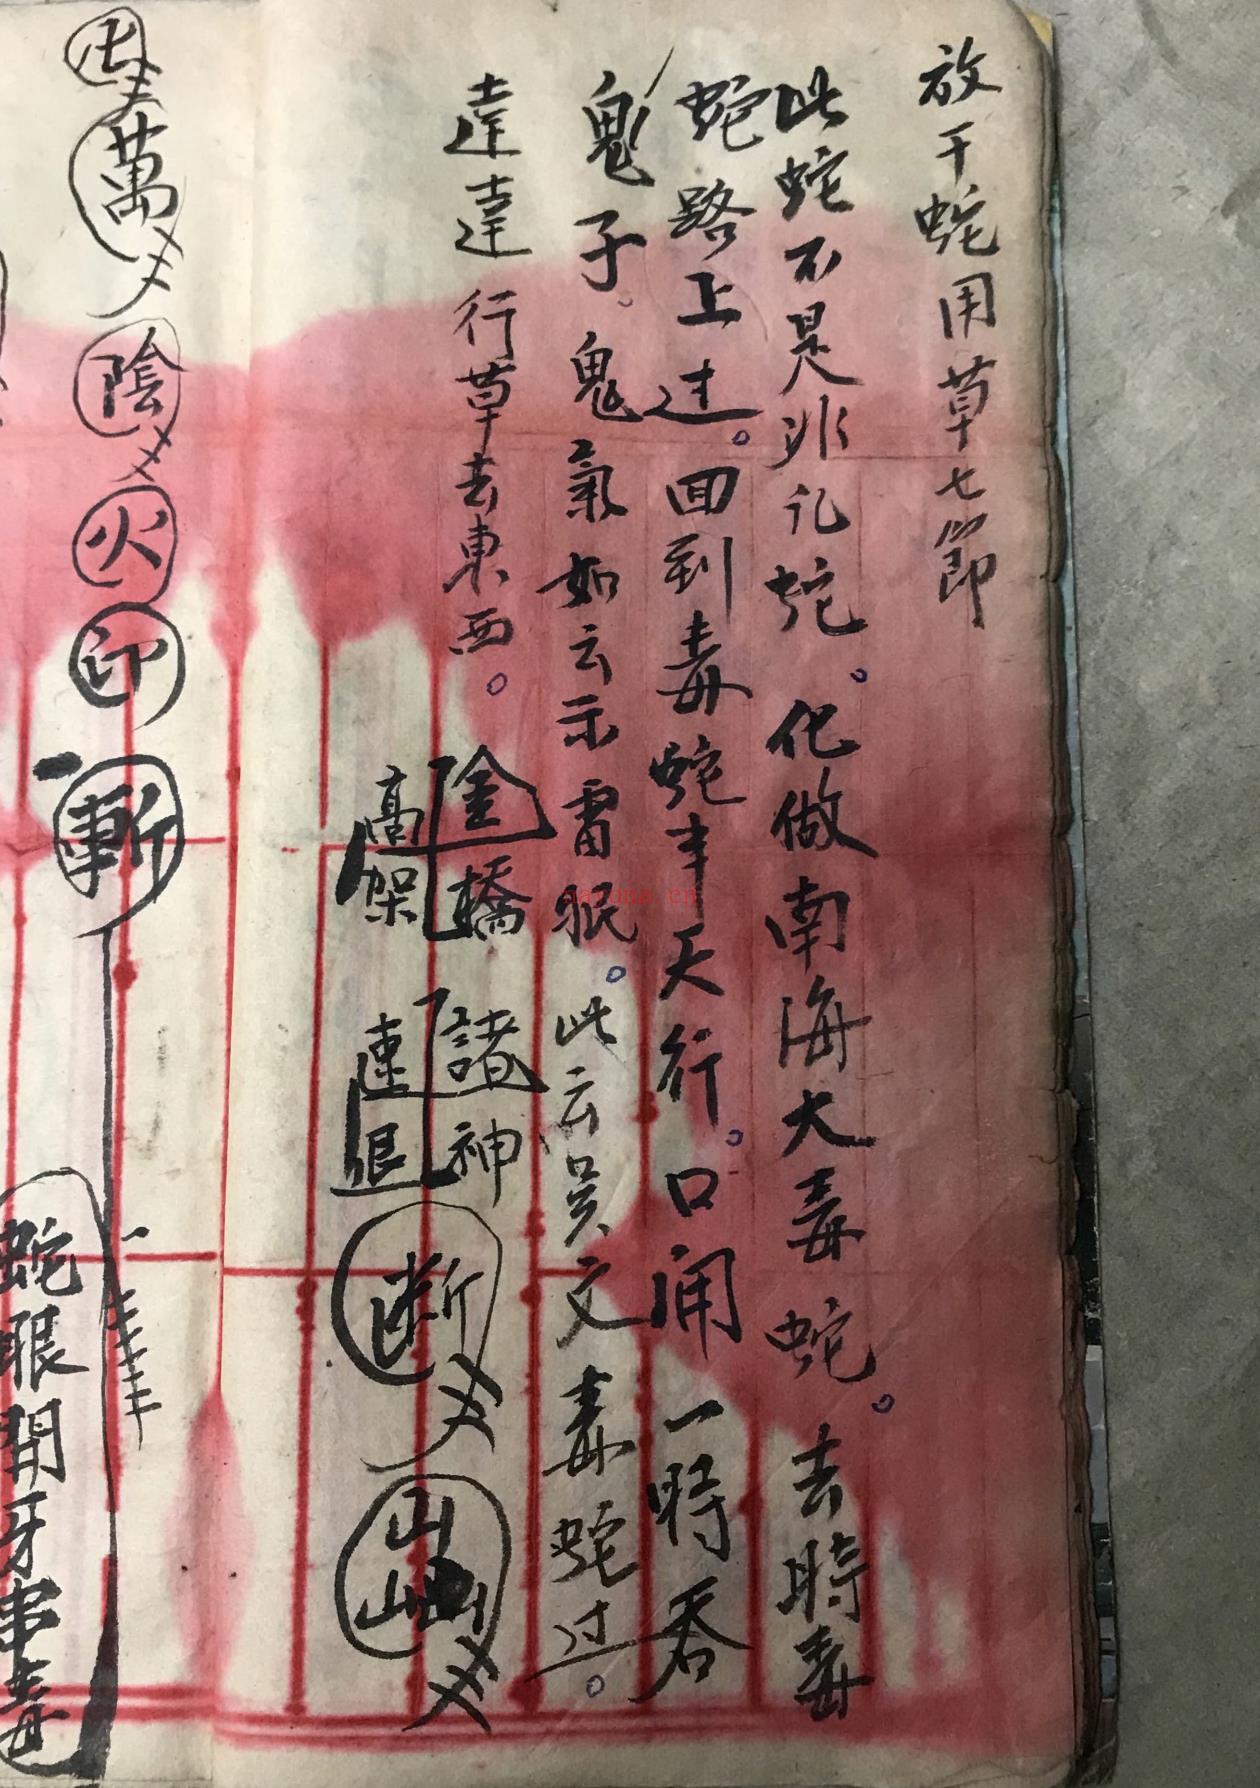 放干蛇用草七節
此蛇不是非礼蛇。化做南海大毒蛇。去時毒
蛇路上过。回到毒蛇半天行。口開一時吞
鬼子。鬼氣如云示雷眼。此云吴文毒蛇过。
達達行草去東西。
金橋 諸神
高架 速退
斷
山山山
萬
陰
火
印
斬
蛇眼開牙串毒